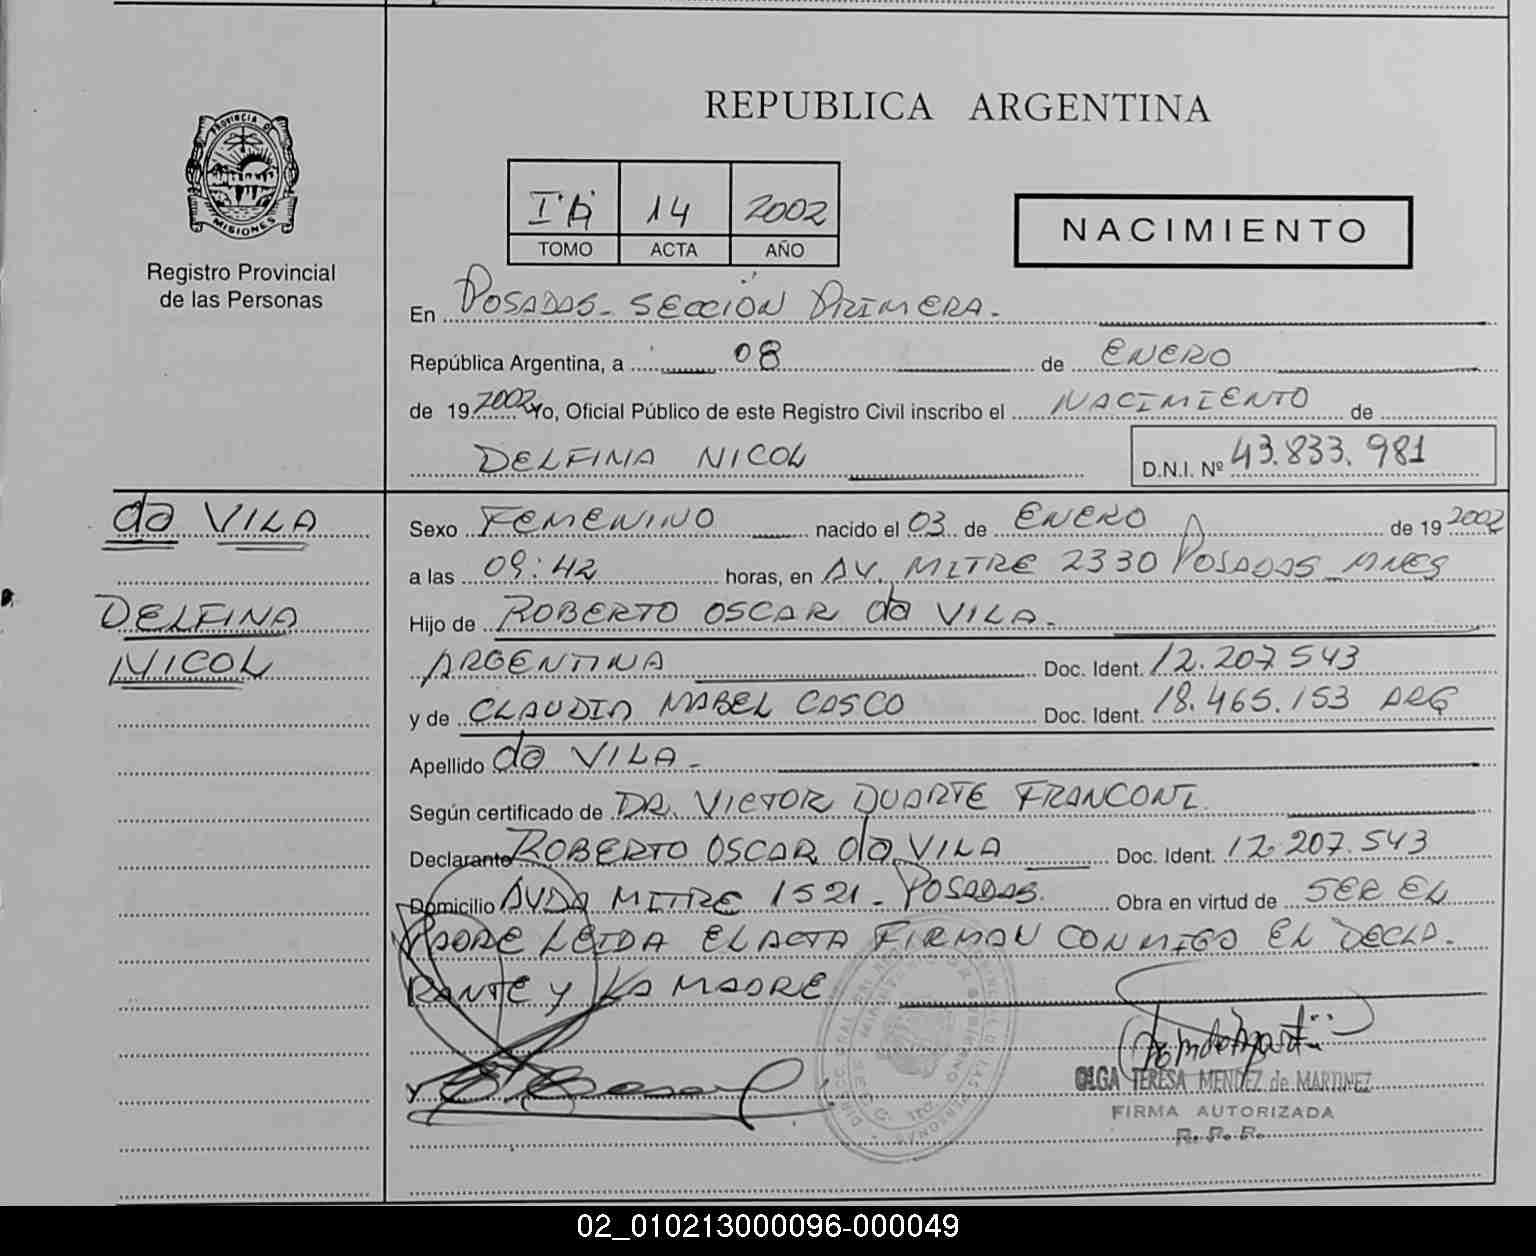 PROVINCIA DE
MISIONES
Registro Provincial
de las Personas
REPUBLICA ARGENTINA
14 2002
TOMO ACTA AÑO
NACIMIENTO
En POSADAS - SECCIÓN PRIMERA.
República Argentina, a 08 de ENERO
de 19 2002 Yo, Oficial Público de este Registro Civil inscribo el NACIMIENTO de
DELFINA NICOL D.N.I. Nº 43.833.981
da VILA
DELFINA
NICOL
Sexo FEMENINO nacido el 03 de ENERO de 19 2002
a las 09:42 horas, en AV. MITRE 2330 POSADAS MNES
Hijo de ROBERTO OSCAR da VILA.
ARGENTINA Doc. Ident. 12.207.543
y de CLAUDIA MABEL CASCO Doc. Ident. 18.465.153 ARG
Apellido da VILA -
Según certificado de DR. VICTOR DUARTE FRANCONI
Declarante ROBERTO OSCAR da VILA Doc. Ident. 12.207.543
Domicilio AVDA MITRE 1521 - POSADAS. Obra en virtud de SER EL
PADRE LEIDA EL ACTA FIRMAN CONMIGO EL DECLA-
RANTE Y LA MADRE
OLGA TERESA MENDEZ de MARTINEZ
FIRMA AUTORIZADA
R. P. P.
02_010213000096-000049